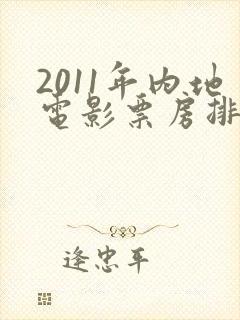 2011年内地
電影票房排
逢忠平